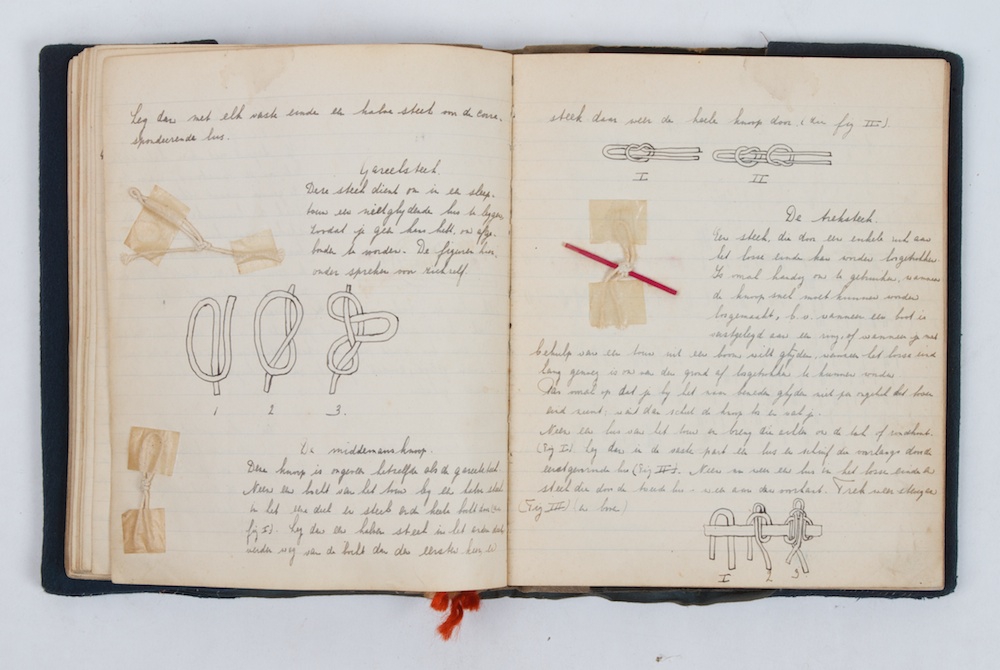 Leg dan met elk vaste einde een halve steek om de corre-
spondeerende lus.
Gareelsteek.
Deze steek dient om in een sleep-
touw een niet glijdende lus te leggen
zoodat je geen kans hebt, om afge-
bonden te worden. De figuren hier-
onder spreken voor zich zelf.
1 2 3.
De middemansknoop.
Deze knoop is ongeveer hetzelfde als de gareelsteek.
Neem een bocht van het touw leg een halve steek
in het eene deel en steek er de heele bocht om (zie
fig I). Leg dan een halve steek in het andere
verder weg van de bocht dan den eersten keer en
steek daar weer de heele knoop door (zie fig II).
I II
De treksteek.
Een steek, die door een enkele ruk aan
het losse einde kan worden losgetrokken.
Is vooral handig om te gebruiken, wanneer
de knoop snel moet kunnen worden
losgemaakt, b.v. wanneer een boot is
vastgelegd aan een ring, of wanneer je met
behulp van een touw uit een boom wilt glijden, wanneer het losse eind
lang genoeg is om van den grond af losgetrokken te kunnen worden.
Pas vooral op dat je bij het naar beneden glijden niet per ongeluk het losse
eind neemt; want dan schiet de knoop los en valt je.
Neem een lus van het touw en breng die achter om de tak of
(Fig I). Leg dan in de vaste part een lus en schuif die voorlangs door de
eerstgevormde lus (Fig II). Neem nu weer een lus in het losse einde en
steek die door de tweede lus weer aan den voorkant. Trek
(Fig III)
I 2 3